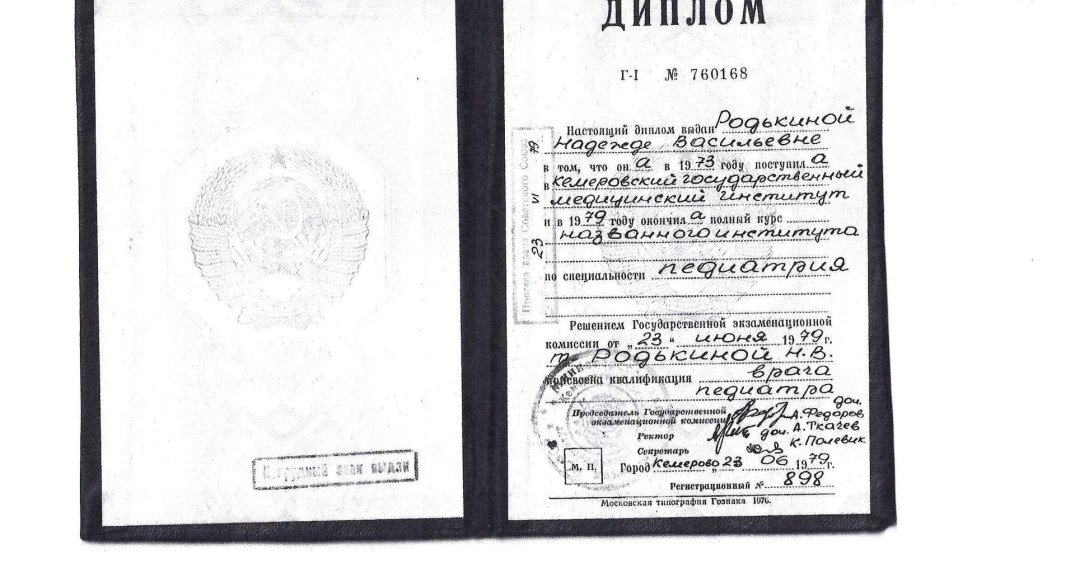 ДИПЛОМ
Г-I № 760168
Настоящий диплом выдан Родькиной
Надежде Васильевне
в том, что он а в 1973 году поступил а
в Кемеровский государственный
медицинский институт
и в 1979 году окончил а полный курс
названного института
по специальности педиатрия
Решением Государственной экзаменационной
комиссии от „23“ июня 1979 г.
т. Родькиной Н.В.
присвоена квалификация врача
педиатра
Председатель Государственной
экзаменационной комиссии доц. А. Федоров
Ректор доц. А. Ткачев
Секретарь К. Полевик
М. П. Город Кемерово 23 06 1979 г.
Регистрационный № 898
Московская типография Гознака 1976.
23 VI 79
Нагрудный знак выдан